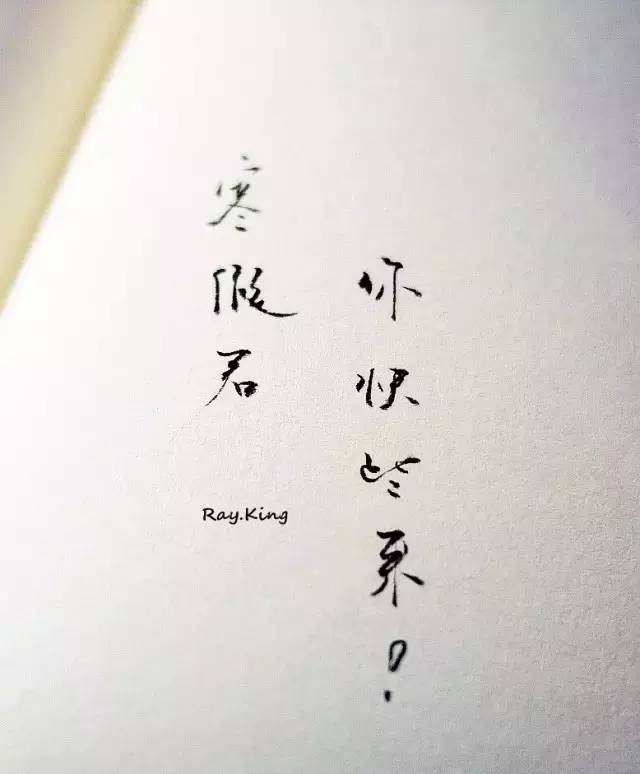 寒假君
你快些来!
Ray.King